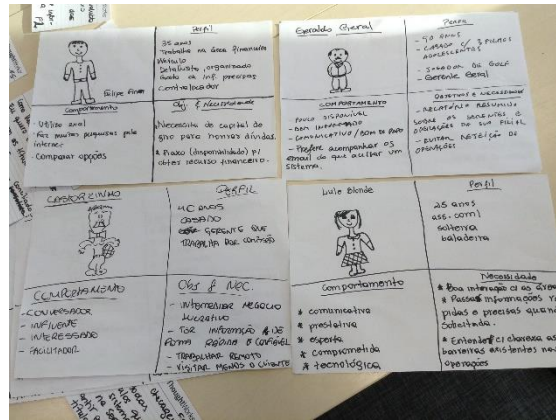 Felipe Finan
Perfil
35 anos
Trabalha na área financeira
Metido
Detalhista, organizado
Gosta de inf. precisas
Controlador
Comportamento
- Utiliza excel
- Faz muitas pesquisas pela
internet
- Comparar opções
Obj & Necessidade
Necessita de capital de
giro para honrar dívidas.
* Prazo (disponibilidade) p/
obter recurso financeiro.
Geraldo Geral
Perfil
- 50 anos
- CASADO c/ 3 FILHOS
ADOLESCENTES
- JOGADOR DE GOLF
- Gerente Geral
COMPORTAMENTO
- POUCO DISPONÍVEL
- BEM INFORMADO
- COMUNICATIVO / BOM DE PAPO
- Prefere acompanhar os
email do que acessar um
sistema.
OBJETIVOS E NECESSIDADE
- RELATÓRIO RESUMIDO
SOBRE OS CLIENTES E
OPERAÇÕES DA SUA FILIAL
- EVITAR REJEIÇÃO DE
OPERAÇÕES
CASTORZINHO
PERFIL
40 ANOS
CASADO
GERENTE QUE
TRABALHA POR COMISSÃO
COMPORTAMENTO
- CONVERSADOR
- INFLUENTE
- INTERESSADO
- FACILITADOR
Obj & Nec.
- INTERMEDIAR NEGÓCIO
LUCRATIVO
- TER INFORMAÇÃO DE
FORMA RÁPIDA E CONFIÁVEL
- TRABALHAR REMOTO
- VISITAR MENOS O CLIENTE
Lule Blonde
Perfil
25 anos
ass. coml
solteira
baladeira
Comportamento
* comunicativa
* prestativa
* esperta
* comprometida
* tecnológica
Necessidade
* Boa interação c/ as áreas
* Passar informações rá
pidas e precisas quando
solicitada.
* Entender c/ clareza as
barreiras existentes nas
operações